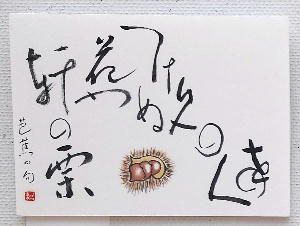 世の人の
見つけぬ
花や
軒の栗
芭蕉の句